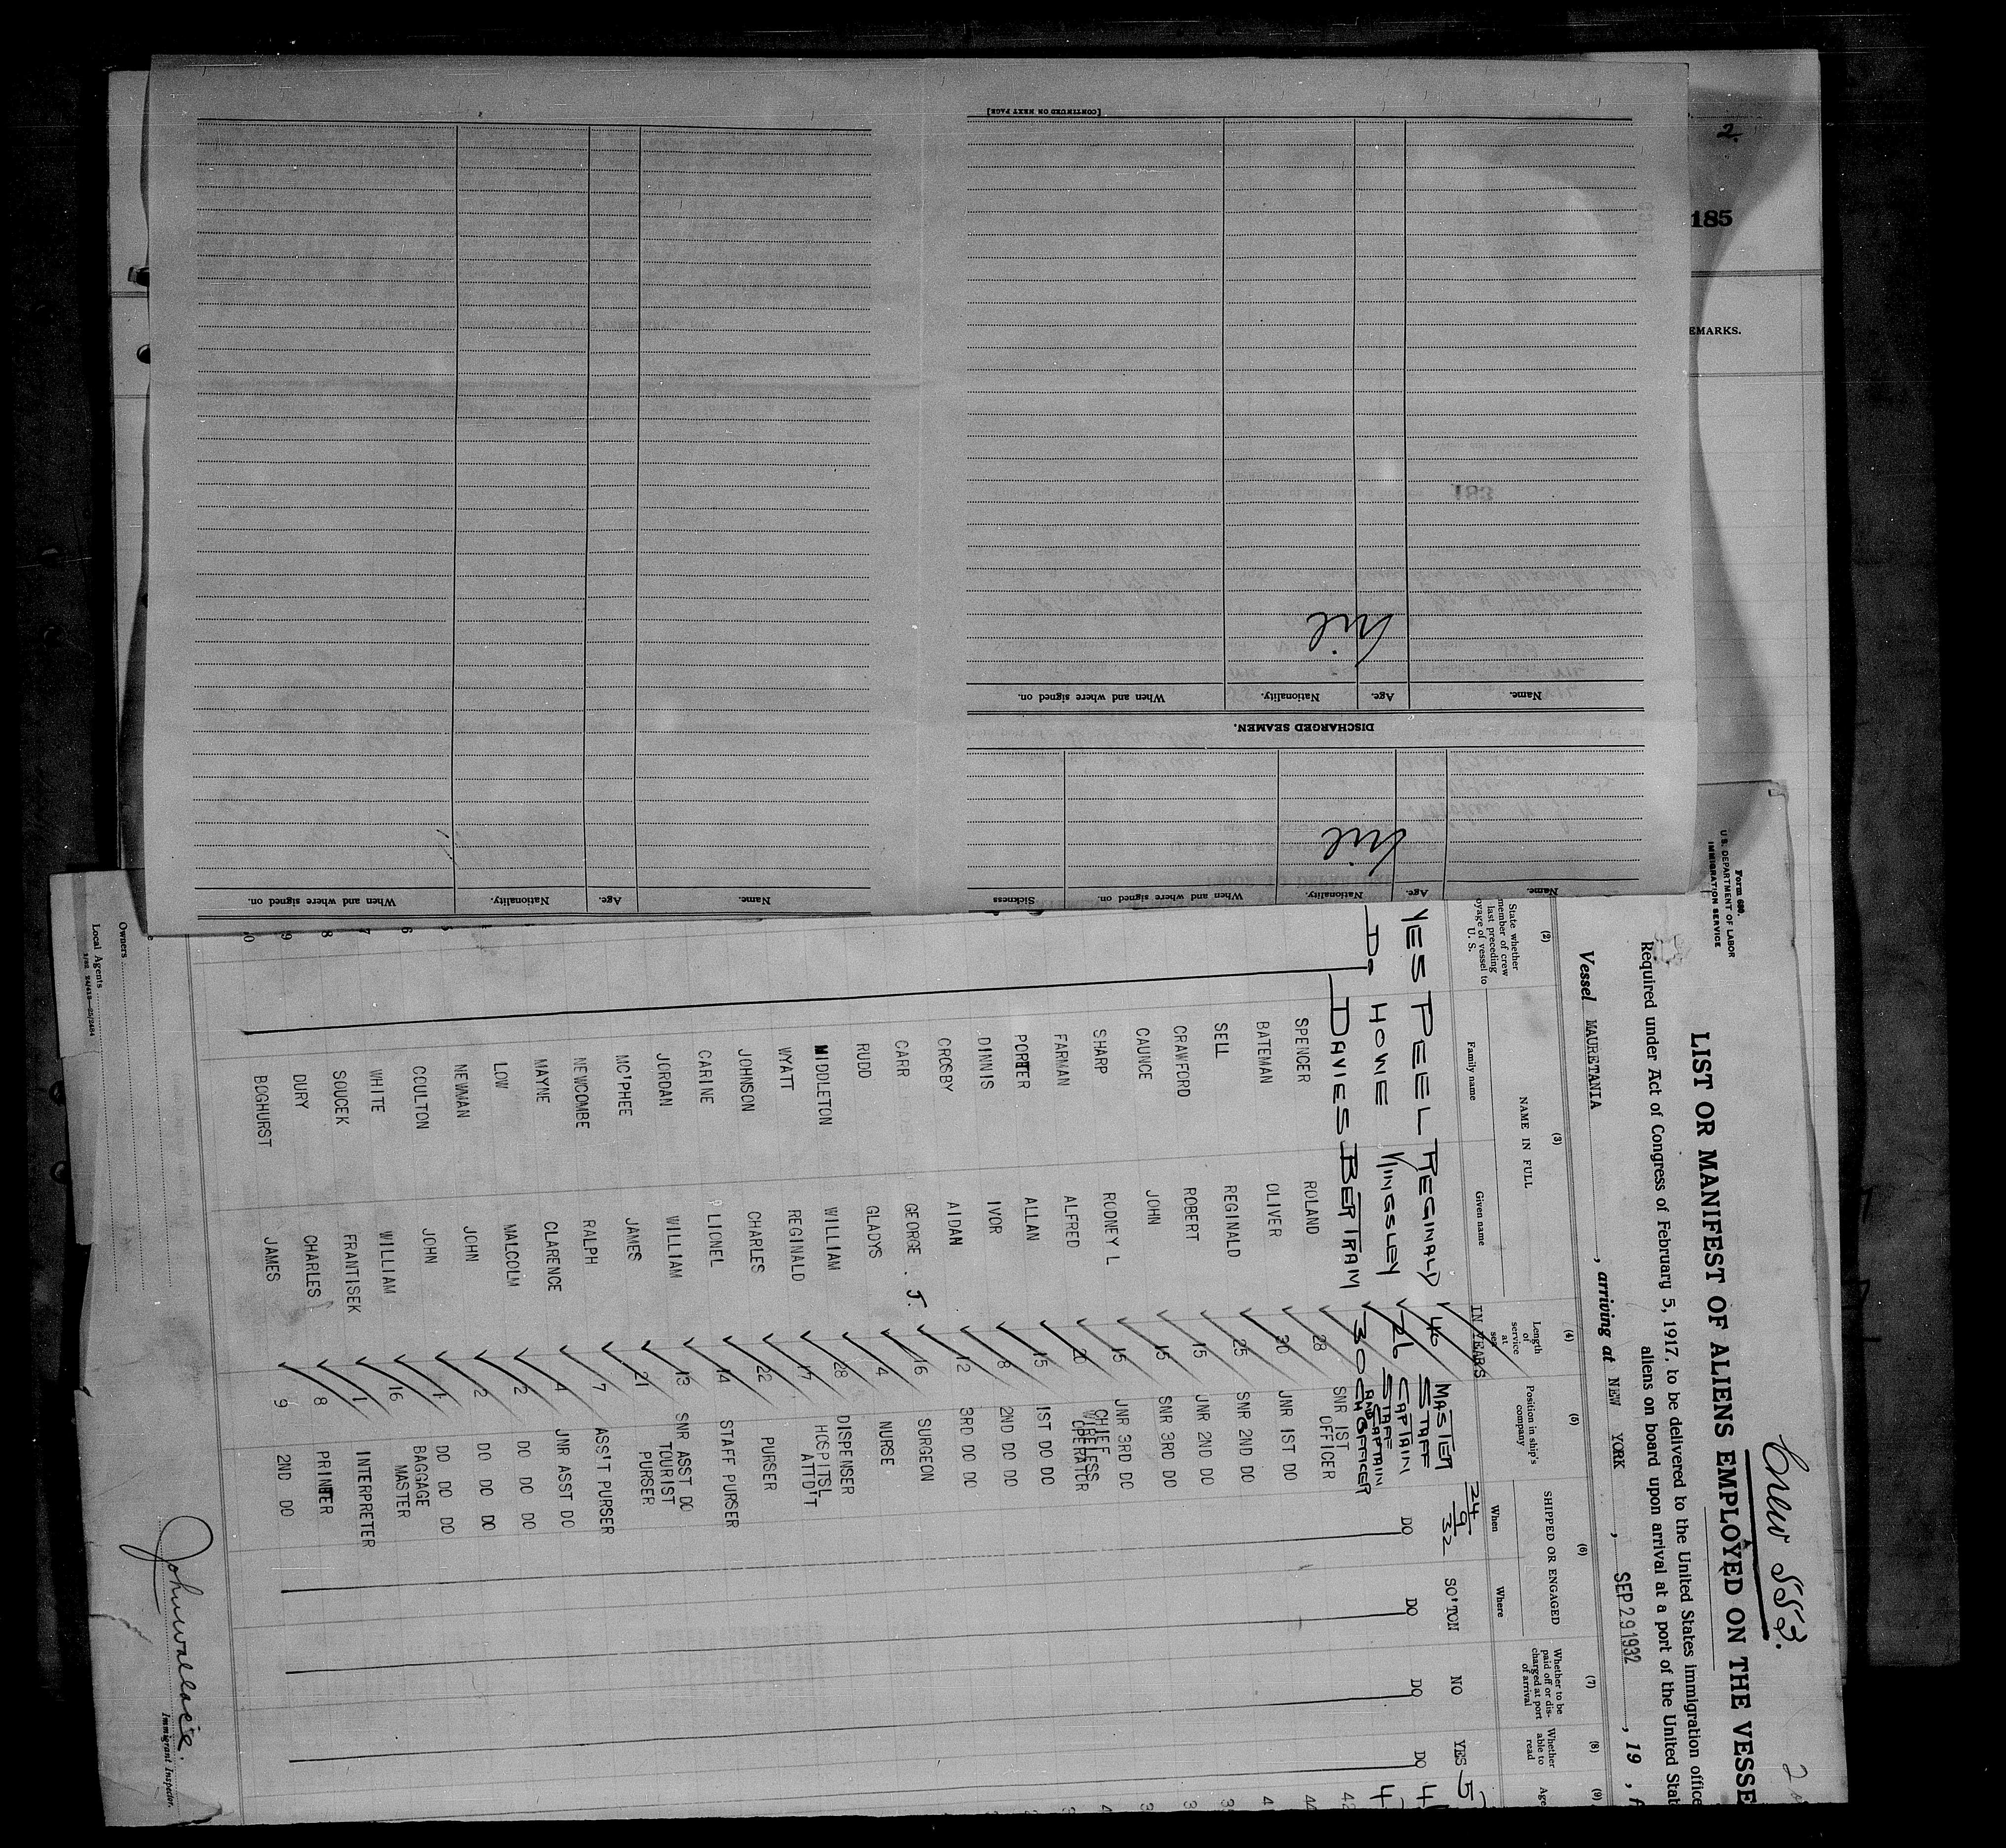 Crew 553.
LIST OR MANIFEST OF ALIENS EMPLOYED ON THE VESSE
Required under Act of Congress of February 5, 1917, to be delivered to the United States immigration office
aliens on board upon arrival at a port of the United Stat
Form 680.
U.S. DEPARTMENT OF LABOR
IMMIGRATION SERVICE
Vessel MAURETANIA, arriving at NEW YORK, SEP 29 1932, 19
(2) (3) (4) (5) (6) (7) (8) (9)
State whether member of crew last preceding oyage of vessel to U. S.
NAME IN FULL
Family name Given name
Length of service at sea
IN YEARS
Position in ship's company
SHIPPED OR ENGAGED
When Where
Whether to be paid off or discharged at port of arrival
Whether able to read
Age
YES PEEL REGINALD 40 MASTER 24/9/32 SO'TON NO YES 5
Do HOWE KINGSLEY 26 STAFF CAPTAIN DO DO DO DO 4
DAVIES BERTRAM 30 STAFF CAPTAIN AND CH OFFICER 4
SPENCER ROLAND 28 SNR 1ST OFFICER 42
BATEMAN OLIVER 30 JNR 1ST DO
SELL REGINALD 25 SNR 2ND DO
CRAWFORD ROBERT 15 JNR 2ND DO
CAUNCE JOHN 15 SNR 3RD DO
SHARP RODNEY L 15 JNR 3RD DO
FARMAN ALFRED 20 CHIEF WIRELESS OPERATOR
PORTER ALLAN 15 1ST DO DO
DINNIS IVOR 8 2ND DO DO
CROSBY AIDAN 12 3RD DO DO
CARR GEORGE. J. 16 SURGEON
RUDD GLADYS 4 NURSE
MIDDLETON WILLIAM 28 DISPENSER HOSPITSL ATTD'T
WYATT REGINALD 17
JOHNSON CHARLES 22 PURSER
CARINE LIONEL 14 STAFF PURSER
JORDAN WILLIAM 13 SNR ASST DO
MC'PHEE JAMES 21 TOURIST PURSER
NEWCOMBE RALPH 7 ASS'T PURSER
MAYNE CLARENCE 4 JNR ASST DO
LOW MALCOLM 2 DO DO DO
NEWMAN JOHN 2 DO DO DO
COULTON JOHN 1 DO DO DO
WHITE WILLIAM 16 BAGGAGE MASTER
SOUCEK FRANTISEK 1 INTERPRETER
DURY CHARLES 8 PRINTER
BOGHURST JAMES 9 2ND DO
Owners
Local Agents
John Wallace.
Immigrant Inspector.
Name. Age. Nationality. When and where signed on. Sickness
nil
DISCHARGED SEAMEN.
Name. Age. Nationality. When and where signed on.
nil
[CONTINUED ON NEXT PAGE]
Name. Age. Nationality. When and where signed on.
2.
185
EMARKS.
183